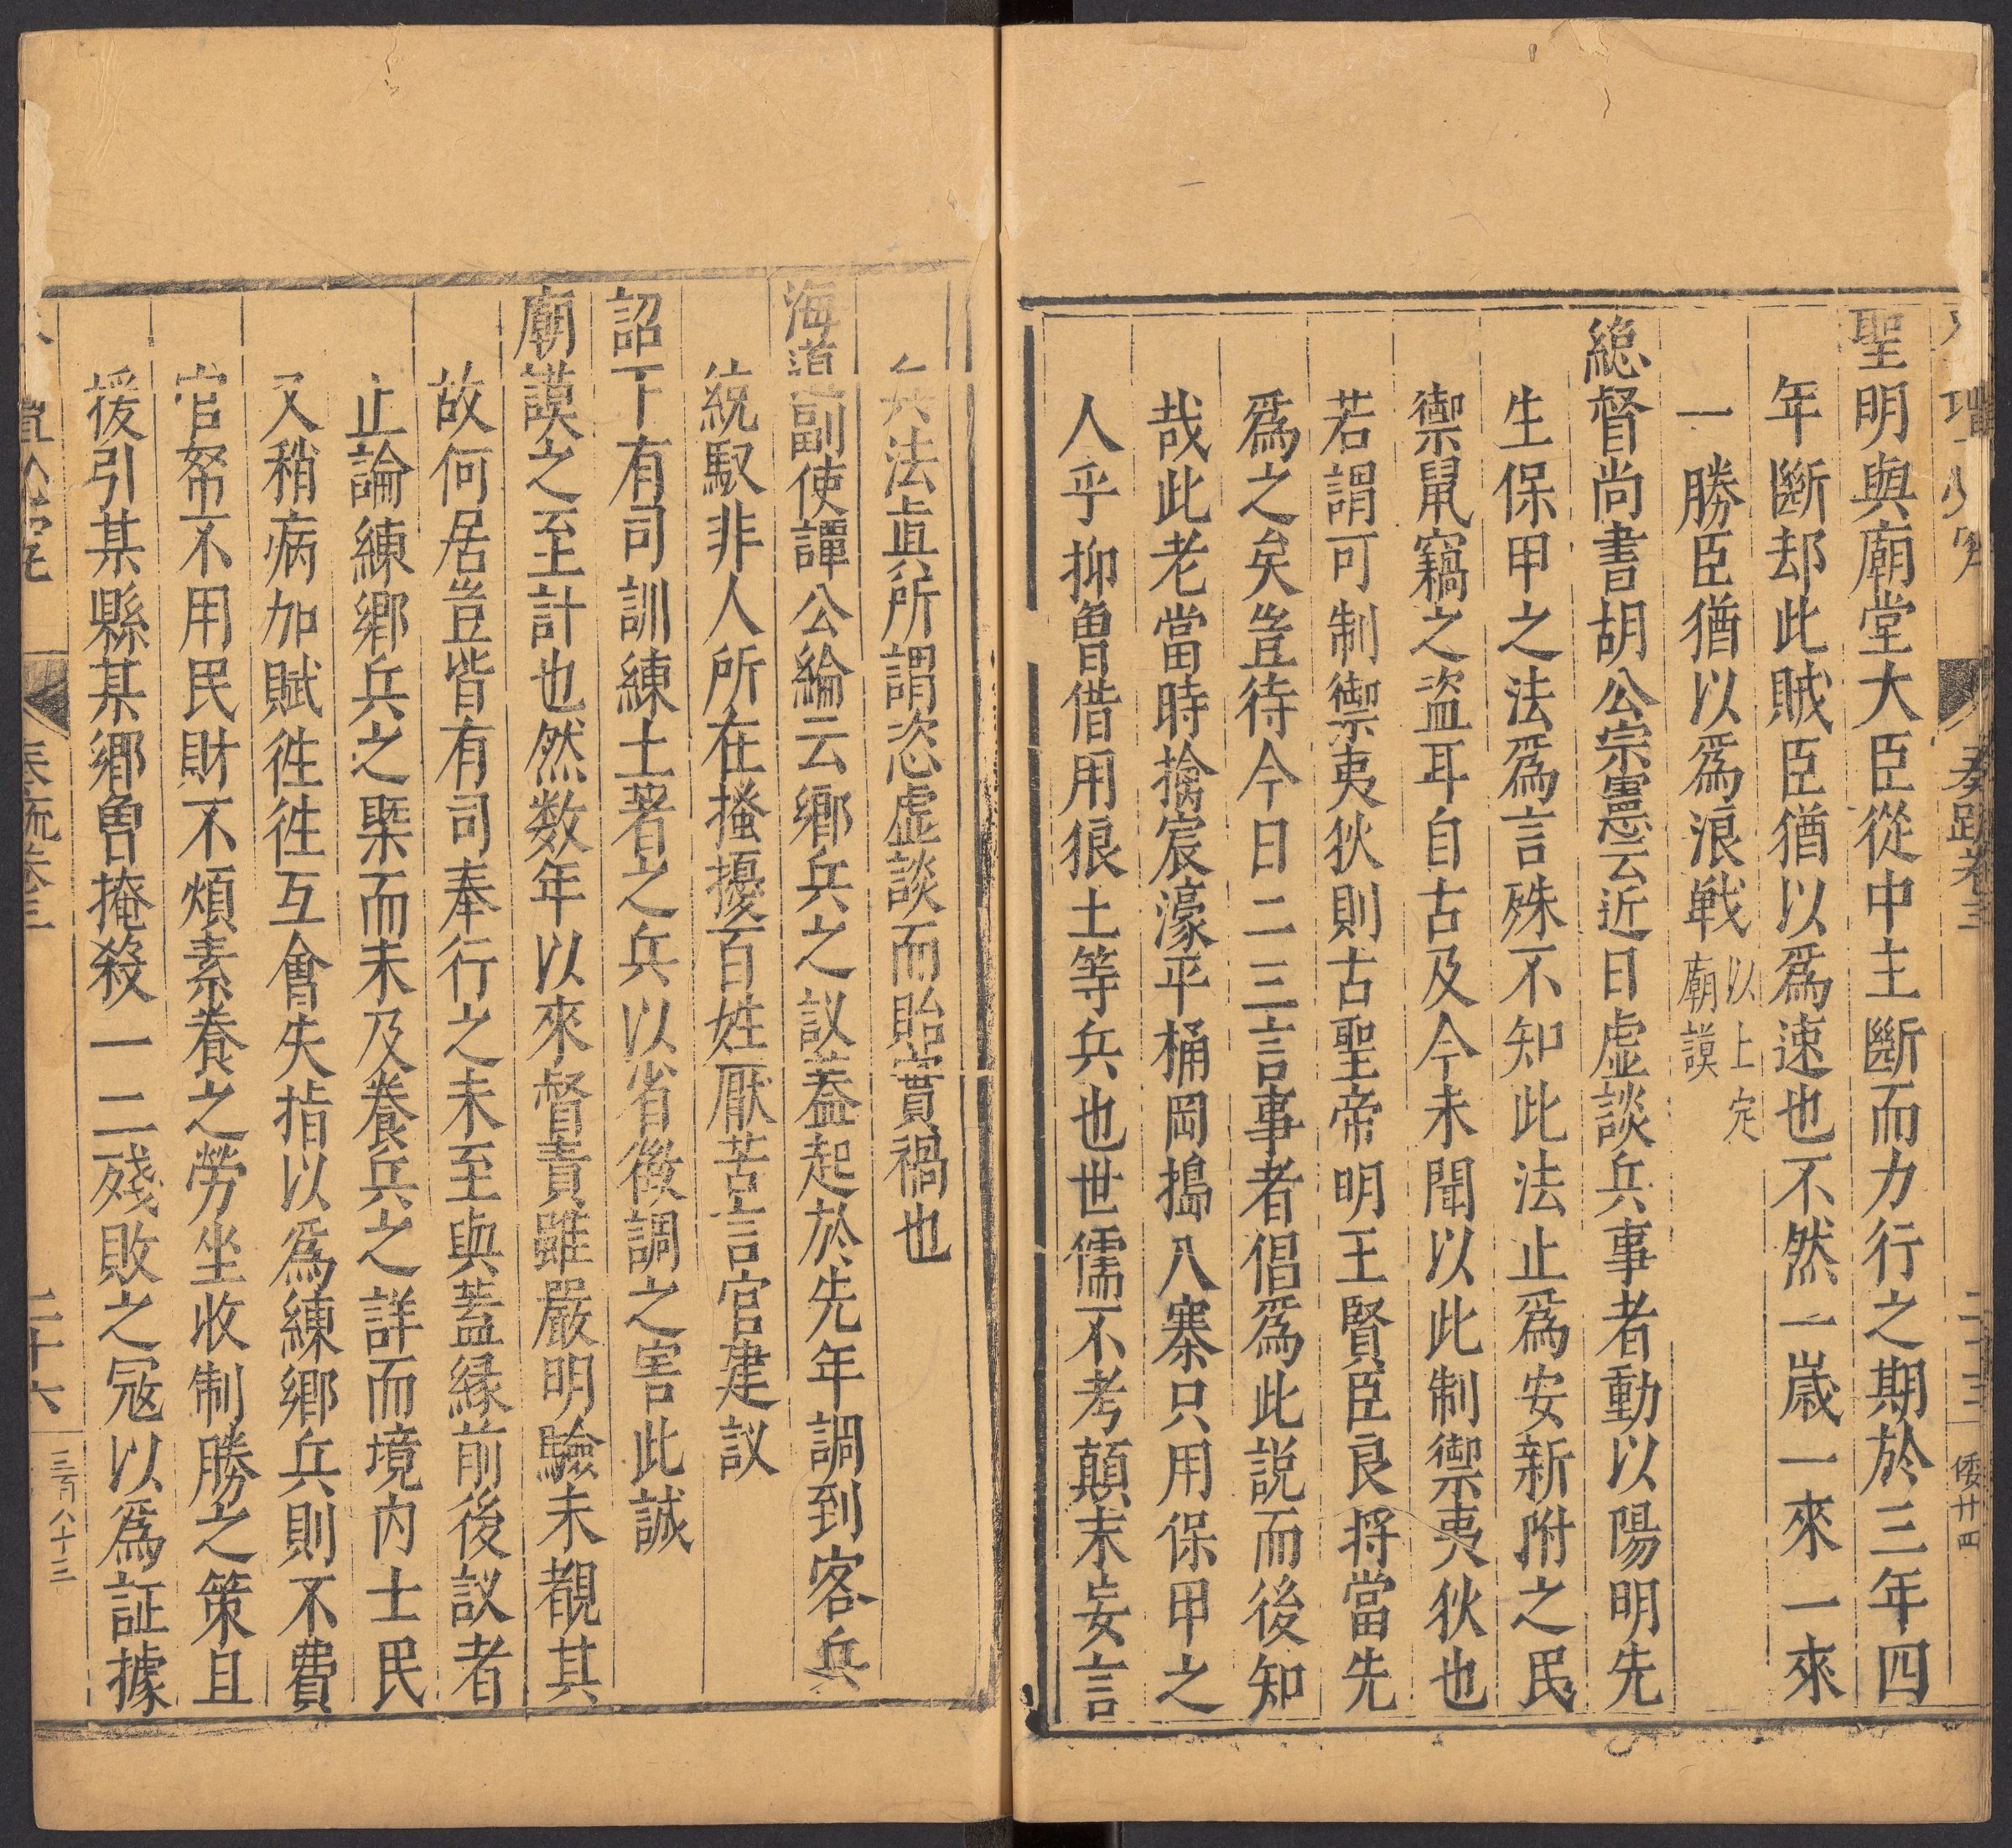 奏疏卷三
二十三
倭廿四
聖明與廟堂大臣從中主斷而力行之期於三年四
年斷却此賊臣猶以爲速也不然一歲一來一來
一勝臣猶以爲浪戰
以上定
廟謨
總督尚書胡公宗憲云近日虛談兵事者動以陽明先
生保甲之法爲言殊不知此法止爲安新附之民
禦鼠竊之盜耳自古及今未聞以此制禦夷狄也
若謂可制禦夷狄則古聖帝明王賢臣良將當先
爲之矣豈待今日二三言事者倡爲此說而後知
哉此老當時擒宸濠平桶岡搗八寨只用保甲之
人乎抑曾借用狼土等兵也世儒不考顛末妄言
兵法眞所謂恣虛談而貽實禍也
海道副使譚公綸云鄉兵之議蓋起於先年調到客兵
統馭非人所在搔擾百姓厭苦言官建議
詔下有司訓練土著之兵以省徵調之害此誠
廟謨之至計也然数年以來督責雖嚴明驗未覩其
故何居豈皆有司奉行之未至與蓋緣前後議者
止論練鄉兵之槩而未及養兵之詳而境內士民
又稍病加賦徃徃互會失指以爲練鄉兵則不費
官帑不用民財不煩素養之勞坐收制勝之策且
援引某縣某鄉曾掩殺一二殘敗之冦以爲証據
奏疏卷三
二十六
三百八十三